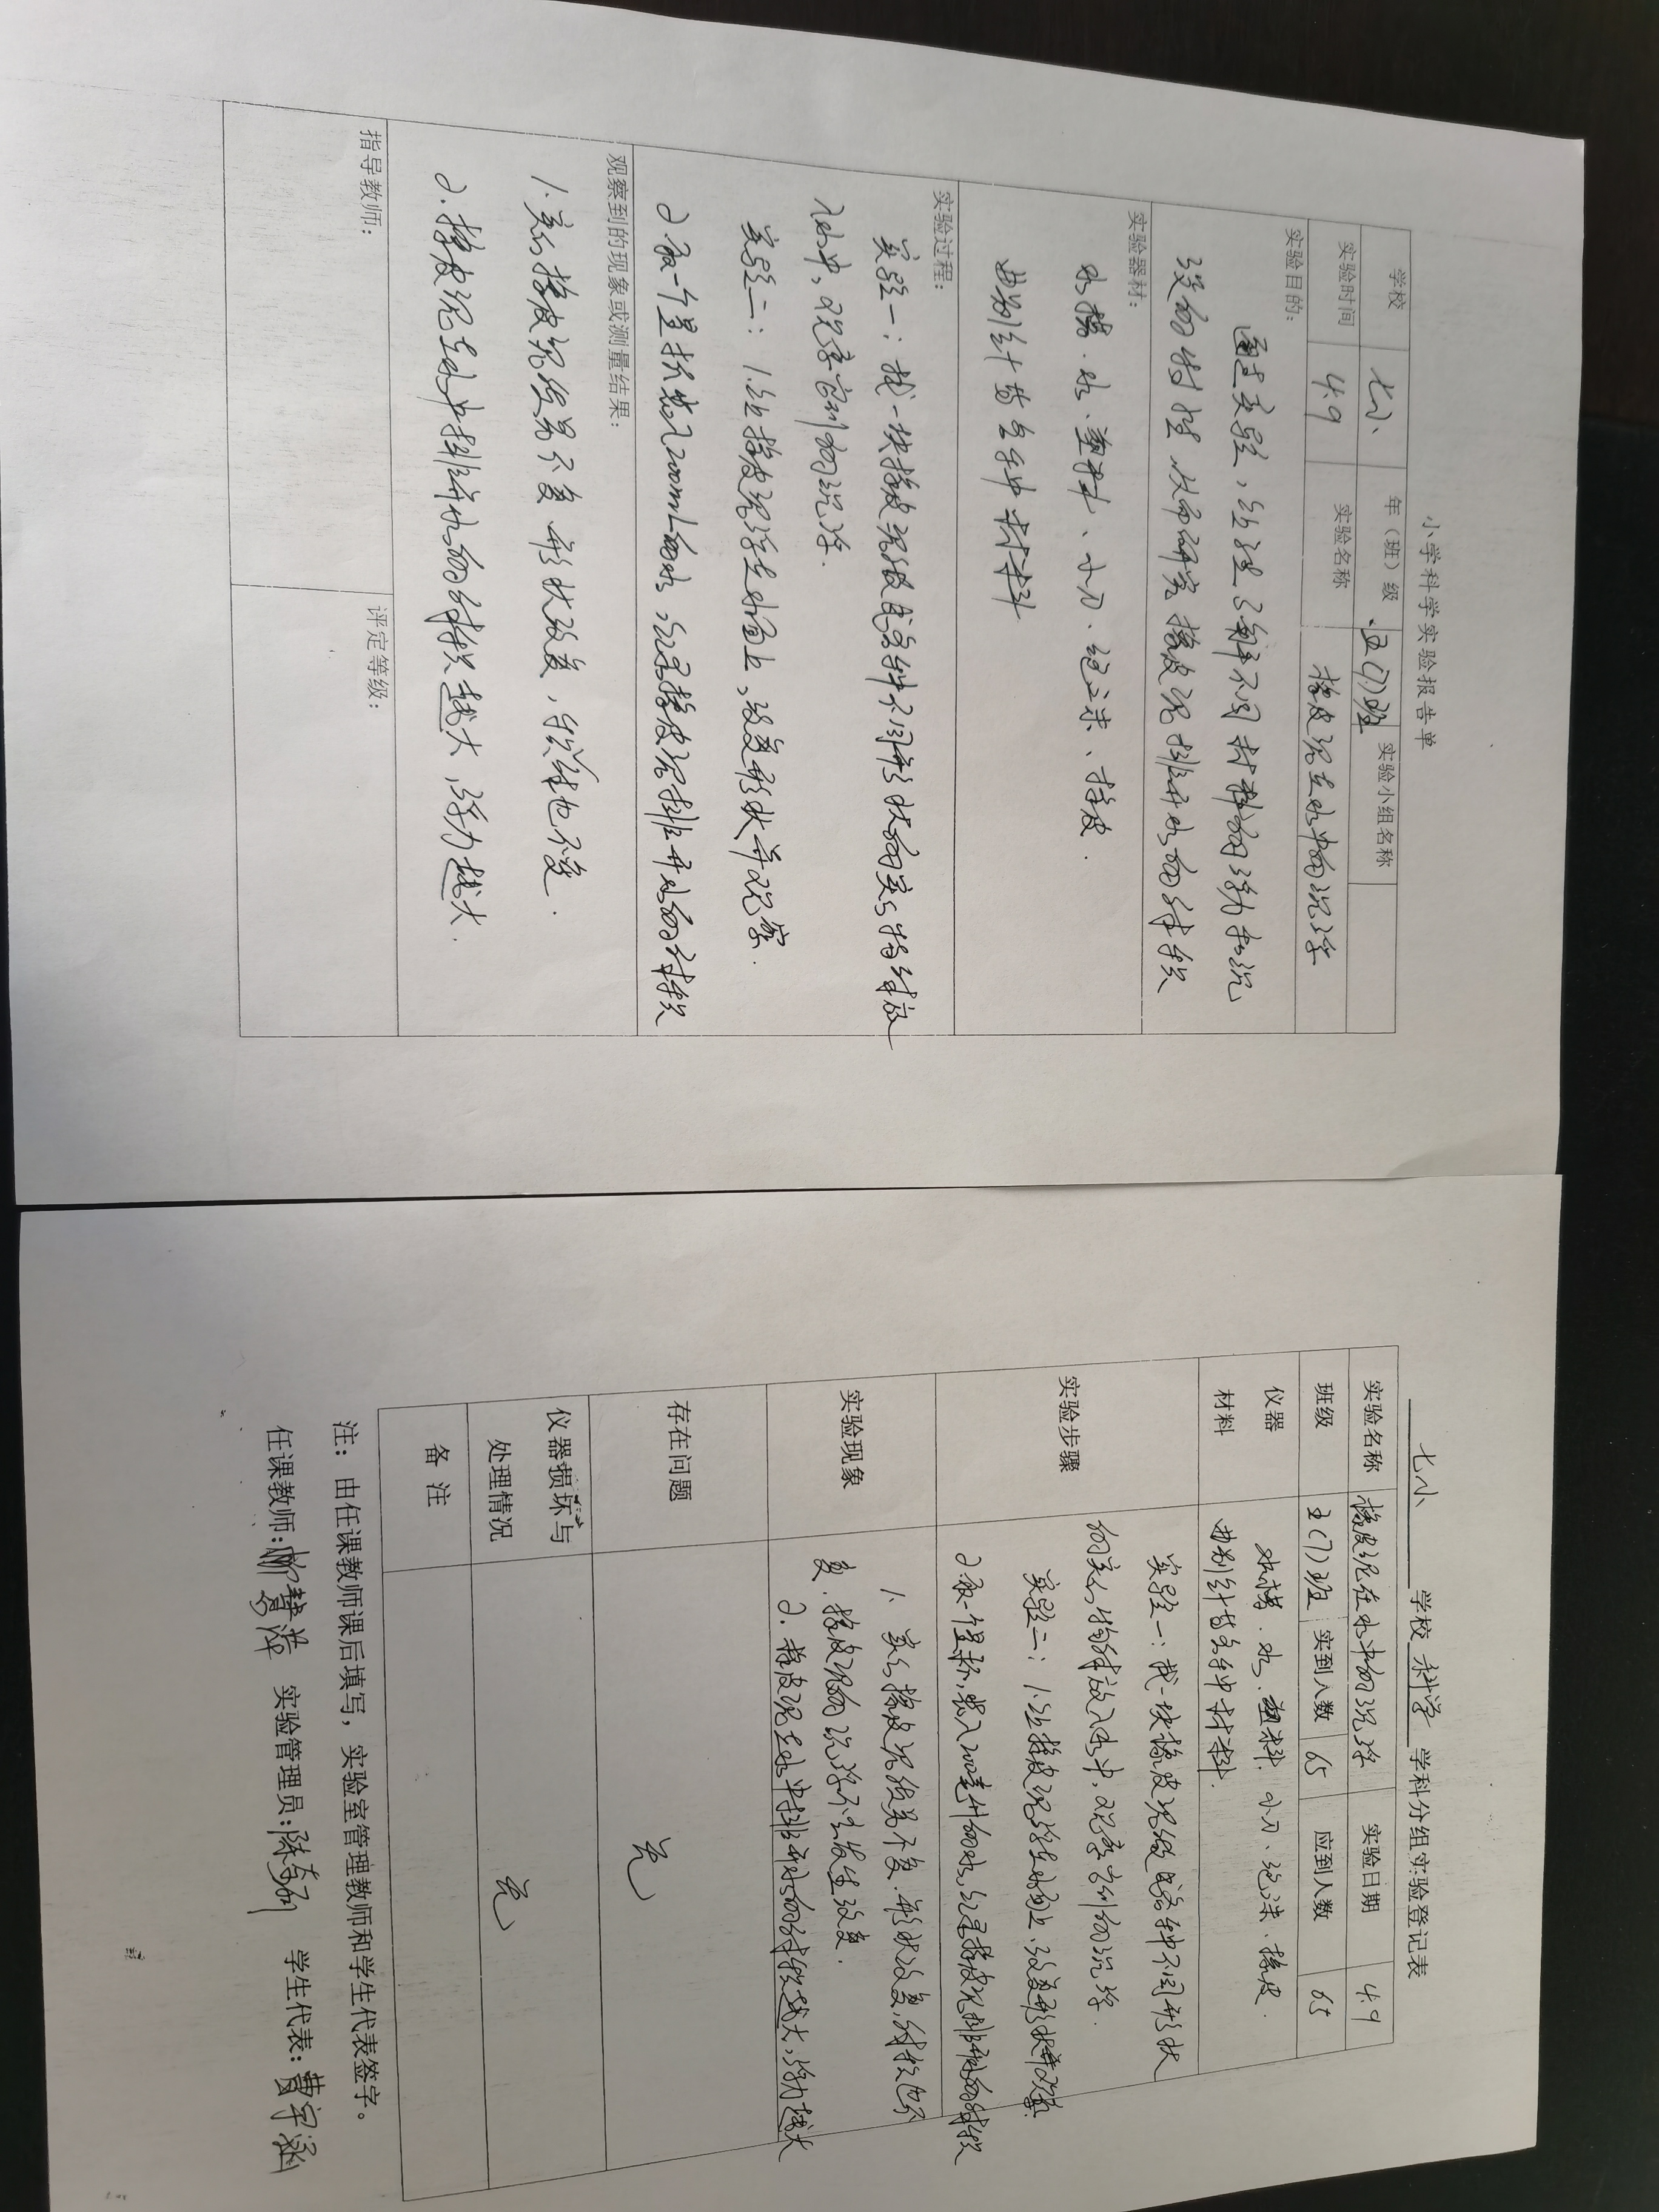 小学科学实验报告单
学校 七小 年（班）级 五(7)班 实验小组名称
实验时间 4.9 实验名称 橡皮泥在水中的沉浮
实验目的：
通过实验，经过了解不同材料的浮力和沉
没的时过，从而研究橡皮泥排开水的体积
实验器材：
水槽、水、塑料、小刀、泡沫、橡皮.
曲别针等各种材料
实验过程：
实验一：找一块橡皮泥做成各种不同形状的实心物体放
入水中，观察它们的沉浮.
实验二：1.让橡皮泥浮在水面上，改变形状并观察.
2.取一个量杯装入200mL的水，记录橡皮泥排开水的体积
观察到的现象或测量结果：
1.实心橡皮泥做第不变 形状改变，体积也不变.
2.橡皮泥在水中排开水的体积越大，浮力越大.
指导教师： 评定等级：
七小 学校 科学 学科分组实验登记表
实验名称 橡皮泥在水中的沉浮 实验日期 4.9
班级 五(7)班 实到人数 65 应到人数 65
仪器 水槽、水、塑料、小刀、泡沫、橡皮.
材料 曲别针等各种材料.
实验步骤
实验一：找一块橡皮泥做成各种不同形状
的实心物体放入水中，观察它们的沉浮.
实验二：1.让橡皮泥浮在水面上、改变形状并观察.
2.取一个量杯，装入200毫升的水，记录橡皮泥排开水的体积
实验现象
1、实心橡皮泥不变.形状改变，体积也不
变.橡皮泥的沉浮不会发生改变.
2.橡皮泥在水中排开水的体积越大，浮力越大
存在问题 无
仪器损坏与
处理情况 无
备 注
注：由任课教师课后填写，实验室管理教师和学生代表签字。
任课教师： 实验管理员： 学生代表：